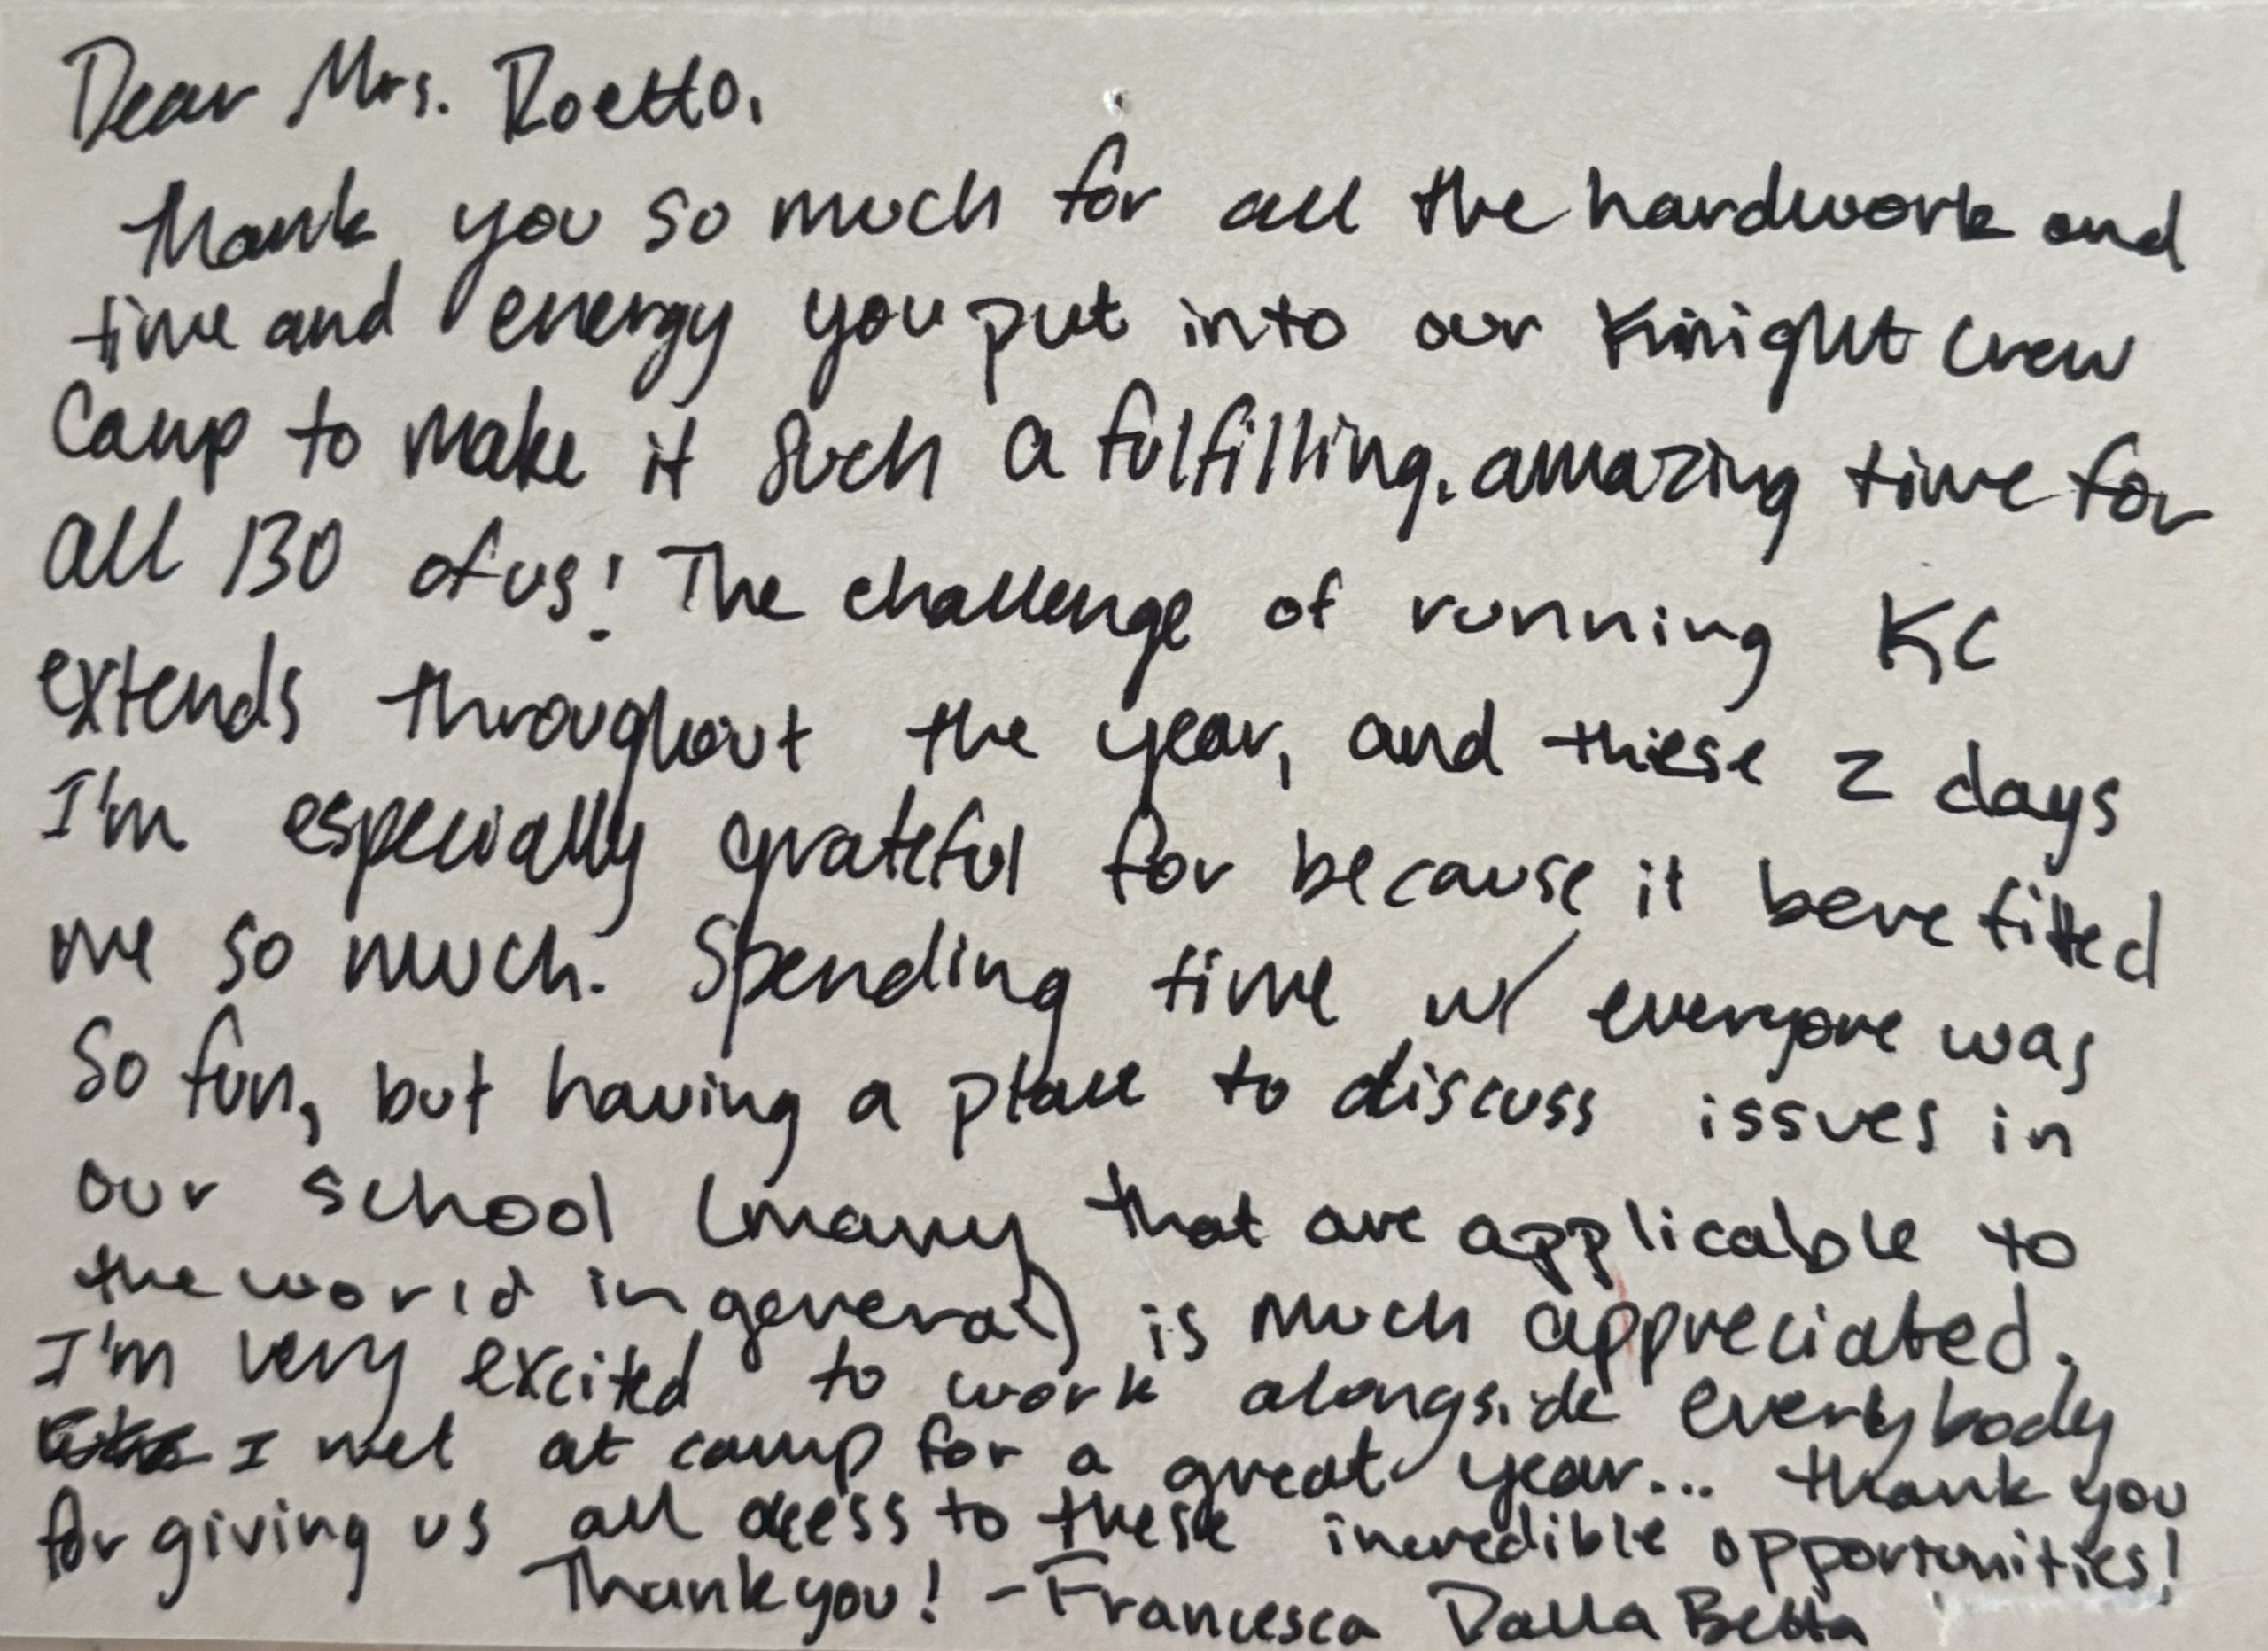 Dear Mrs. Roetto,
Thank you so much for all the hardwork and
time and energy you put into our Knight Crew
Camp to make it such a fulfilling, amazing time for
all 130 of us! The challenge of running KC
extends throughout the year, and these 2 days
I'm especially grateful for because it benefitted
me so much. Spending time w/ everyone was
so fun, but having a place to discuss issues in
our school (many that are applicable to
the world in general) is much appreciated.
I'm very excited to work alongside everybody
I met at camp for a great year... thank you
for giving us all access to these incredible opportunities!
Thank you! - Francesca Dalla Betta